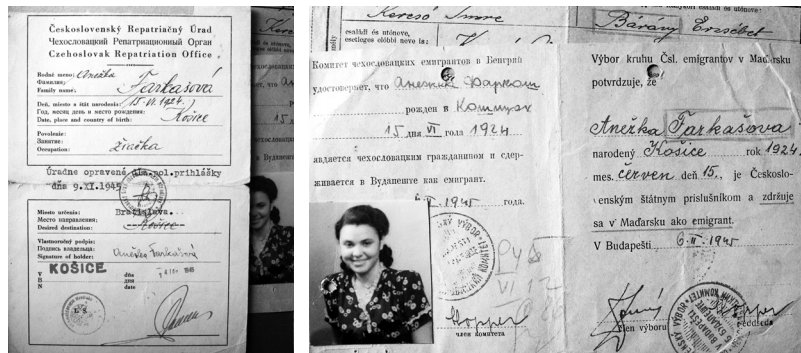 Československý Repatriačný Úrad
Чехословацкий Репатриационный Орган
Czehoslovak Repatriation Office
Rodné meno: Anežka
Фамилия:
Family name: Farkašová
Deň, miesto a štát narodenia: 15. VI. 1924.
Год, месяц день и место рождения:
Date, place and country of birth: Košice
Povolenie:
Занятие:
Occupation: žiačka
Úradne opravené dľa pol. prihlášky
dňa 9.XI.1945
Miesto určenia: Bratislava.
Место направления:
Desired destination: Košice
Vlastnoručný podpis:
Подпись владельца:
Signature of holder: Anežka Farkašová
KOŠICE
V dňa
В дня
N date
L. S.
Kercsó Imre
családi és utóneve,
esetleges előbbi neve is:
Комитет чехословацких емигрантов в Венгрии
удостоверяет, что Анежка Фаркаш
рожден в Кошицах
15 дня VI года 1924
является чехословацким гражданином и сдер-
живается в Будапеште как емигрант.
1945 года.
член комитета
Bárány Erzsébet
Výbor kruhu Čsl. emigrantov v Maďarsku
potvrdzuje, že
Anežka Farkašova
narodený Košice rok 1924
mes. červen deň 15., je Českoslo-
venským štátnym príslušníkom a zdržuje
sa v Maďarsku ako emigrant.
V Budapešti 6. II. 1945
člen výboru
predseda